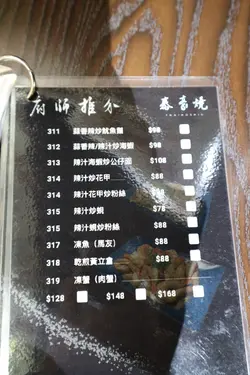 廚師推介 泰高燒
311 蒜香辣炒魷魚鬚 $98
312 蒜香辣/辣汁炒海蝦 $98
313 辣汁海蝦炒公仔麵 $108
314 辣汁炒花甲 $88
314 辣汁花甲炒粉絲 $88
315 辣汁炒蜆 $78
315 辣汁蜆炒粉絲 $88
317 凍魚（馬友） $88
318 乾煎黃立倉 $88
319 凍蟹（肉蟹）
$128 $148 $168